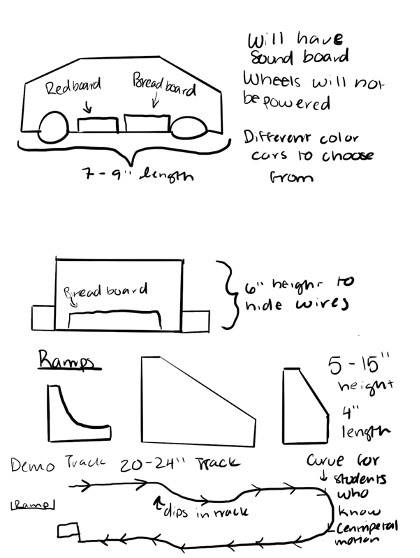 Will have
Sound board
Wheels will not
be powered
Redboard
Breadboard
Different color
cars to choose
from
7 - 9" length
Breadboard
6" height to
hide wires
Ramps
5 - 15"
height
4"
length
Demo Track 20-24" Track
Curve for
students
who
know
centripetal
motion
Ramp
dips in track